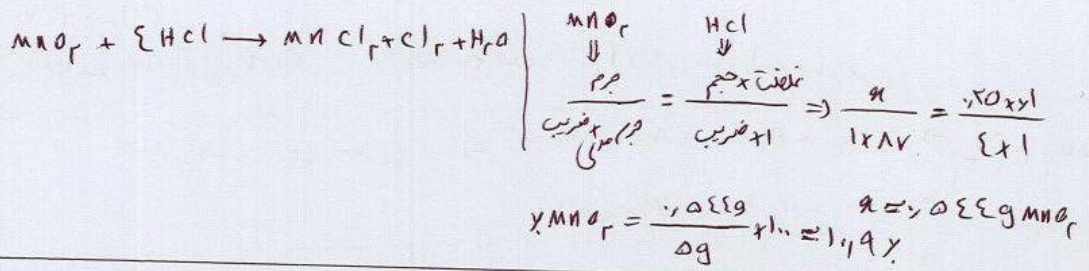 MnO۲ + ۴HCl → MnCl۲ + Cl۲ + H۲O
MnO۲ HCl
⇓ ⇓
جرم / جرم مولی × ضریب = غلظت × حجم / ۱ × ضریب ⇒ x / ۱×۸۷ = ۰٫۲۵×۰٫۱ / ۴×۱
x = ۰٫۵۴۴g MnO۲
% MnO۲ = ۰٫۵۴۴g / ۵g × ۱۰۰ = ۱۰٫۹ %